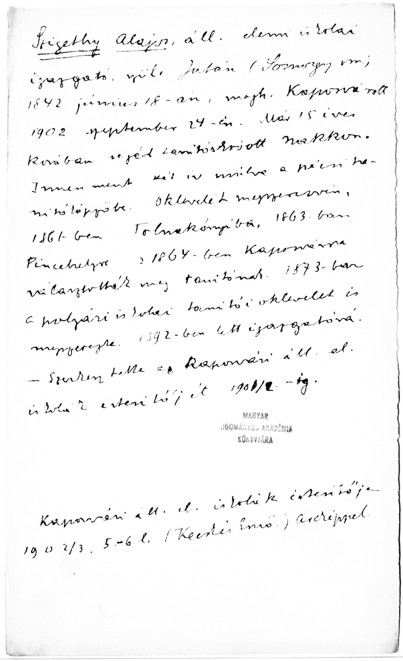 Szigethy Alajos, áll. elemi iskolai
igazgató, szül. Jután (Somogy vm)
1842 június 18-án, megh. Kaposvárott
1902 szeptember 24-én. Már 15 éves
korában segéd Nakkon.
Innen ment két év mulva a pécsi ta-
nitóképzőbe. Oklevelét megszerezvén,
1861-ben Tolnakónyiba, 1863-ban
Pincehelyre s 1864-ben Kaposvárra
választották meg tanitónak. 1873-ban
a polgári iskolai tanitói oklevelet is
megszerezte. 1892-ben lett igazgatóvá.
– Szerkesztette a Kaposvári áll. el.
iskolák értesitőjét 1901/2-ig.
MAGYAR
TUDOMÁNYOS AKADÉMIA
KÖNYVTÁRA
Kaposvári áll. el. iskolák értesitője
1902/3. 5-6 l. (Kecskés Ernő) Arcképpel.